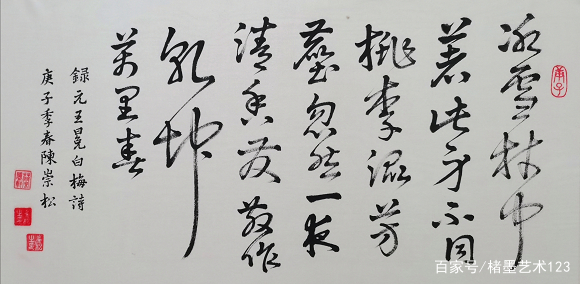 庚子
冰雪林中
著此身不同
桃李混芳
塵忽然一夜
清香發散作
乾坤
萬里春
録元王冕白梅詩
庚子季春陳崇松
百家号/楮墨艺术123